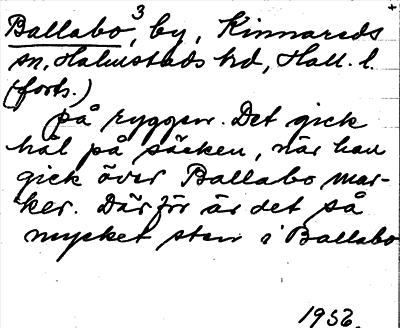 Ballabo³, by, Kinnareds
sn, Halmstads hd, Hall. l.
(forts.)
på ryggen. Det gick
hål på säcken, när han
gick över Ballabo mar-
ker. Därför är det så
mycket sten i Ballabo
1956.